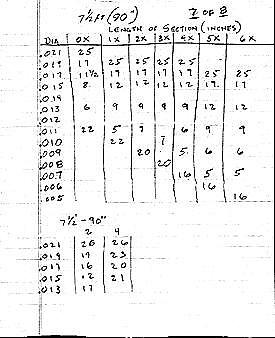 7½ Ft (90") 7 OF 8
LENGTH OF SECTION (INCHES)
DIA 0X 1X 2X 3X 4X 5X 6X
.021 25
.019 17 25 25 25 25
.017 11½ 17 17 17 17 25 25
.015 8 12 12 12 17 17
.014
.013 6 9 9 9 9 12 12
.012
.011 22 5 6 9 9
.010 22 7
.009 20 5 6 6
.008 20
.007 16 5 5
.006 16
.005 16
7½' - 90"
2 4
.021 26 26
.019 17 23
.017 16 20
.015 12 21
.013 17